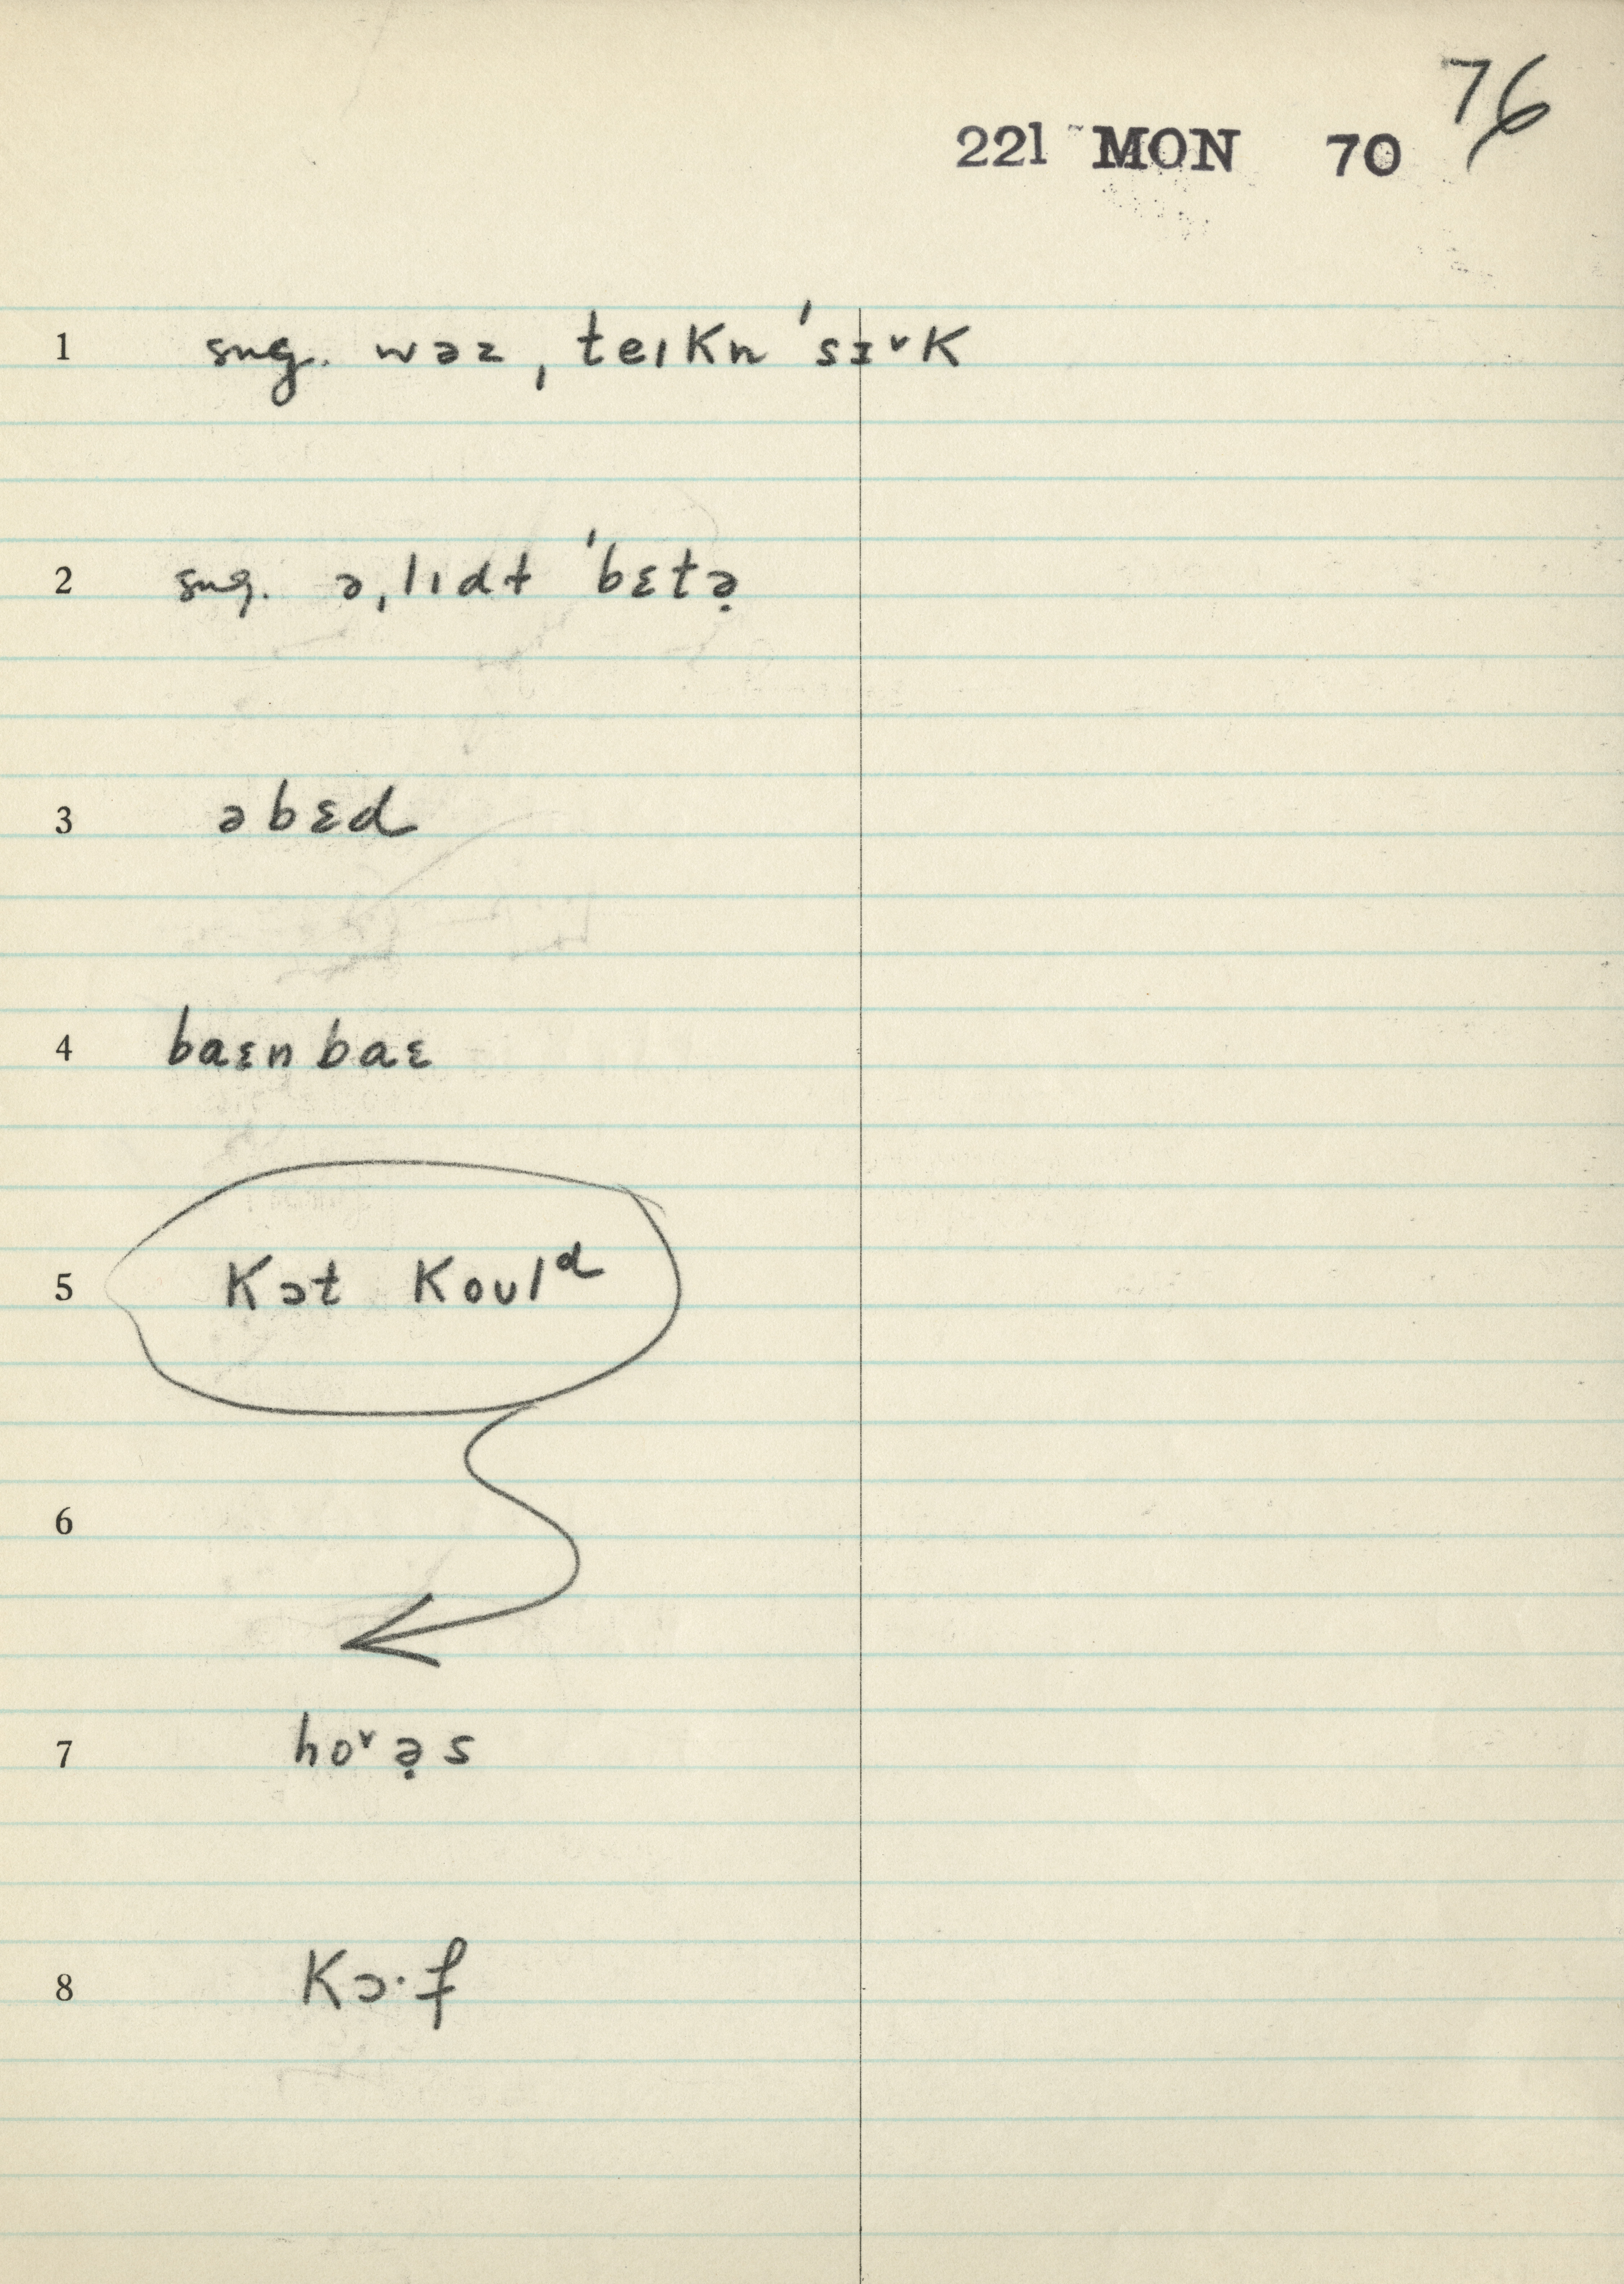 76
221 MON 70
1 sug. wəz ˌteɪKn ˈsɪᵛK
2 sug. əˌlɪdt ˈbɛtə̣
3 əbɛd
4 baɛn baɛ
5 Kɔt Koʊlᵈ
6
7 hoᵛə̣s
8 Kɔ·f